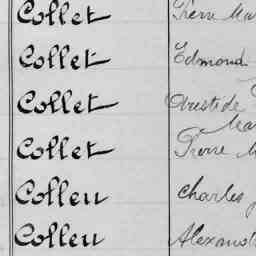 Collet Pierre Mar
Collet Edmond
Collet Aristide
Mar
Collet Pierre M
Colleu Charles
Colleu Alexand